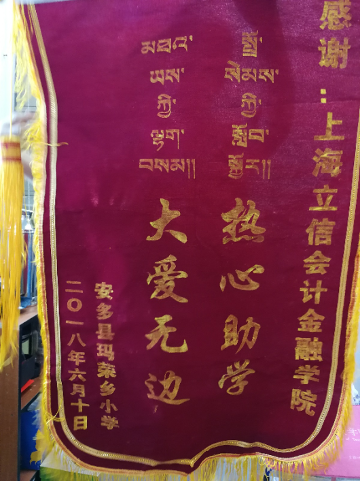 感谢：上海立信会计金融学院
སློབ་
སེམས་
ཀྱི་
སློབ་
སྐྱོར།།
热心助学
མཐའ་
ཡས་
ཀྱི་
ལྷག་
བསམ།།
大爱无边
安多县玛荣乡小学
二〇一八年六月十日